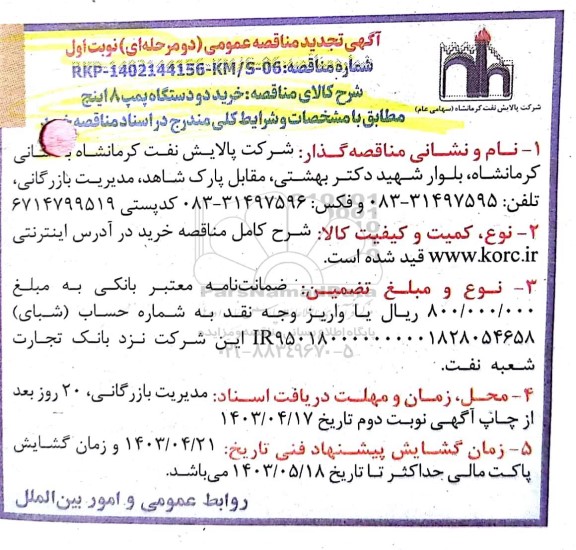 آگهی تجدید مناقصه عمومی (دو مرحله‌ای) نوبت اول
شماره مناقصه: RKP-1402144156-KM/S-06
شرح کالای مناقصه: خرید دو دستگاه پمپ ۸ اینچ
مطابق با مشخصات و شرایط کلی مندرج در اسناد مناقصه
شرکت پالایش نفت کرمانشاه (سهامی عام)
۱- نام و نشانی مناقصه‌گذار: شرکت پالایش نفت کرمانشاه
کرمانشاه، بلوار شهید دکتر بهشتی، مقابل پارک شاهد، مدیریت بازرگانی،
تلفن: ۳۱۴۹۷۵۹۵-۰۸۳ و فکس: ۳۱۴۹۷۵۹۶-۰۸۳ کدپستی ۶۷۱۴۷۹۹۵۱۹
۲- نوع، کمیت و کیفیت کالا: شرح کامل مناقصه خرید در آدرس اینترنتی
www.korc.ir قید شده است.
۳- نوع و مبلغ تضمین: ضمانت‌نامه معتبر بانکی به مبلغ
۸۰۰/۰۰۰/۰۰۰ ریال یا واریز وجه نقد به شماره حساب (شبای)
IR۹۵۰۱۸۰۰۰۰۰۰۰۰۰۰۱۸۲۸۰۵۴۶۵۸ این شرکت نزد بانک تجارت
شعبه نفت.
۴- محل، زمان و مهلت دریافت اسناد: مدیریت بازرگانی، ۲۰ روز بعد
از چاپ آگهی نوبت دوم تاریخ ۱۴۰۳/۰۴/۱۷
۵- زمان گشایش پیشنهاد فنی تاریخ: ۱۴۰۳/۰۴/۲۱ و زمان گشایش
پاکت مالی حداکثر تا تاریخ ۱۴۰۳/۰۵/۱۸ می‌باشد.
روابط عمومی و امور بین‌الملل